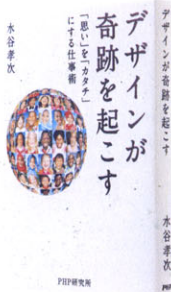 デザインが
奇跡を起こす
「思い」を「カタチ」
にする仕事術
水谷孝次
PHP研究所
デザインが奇跡を起こす
水谷孝次
PHP研究所